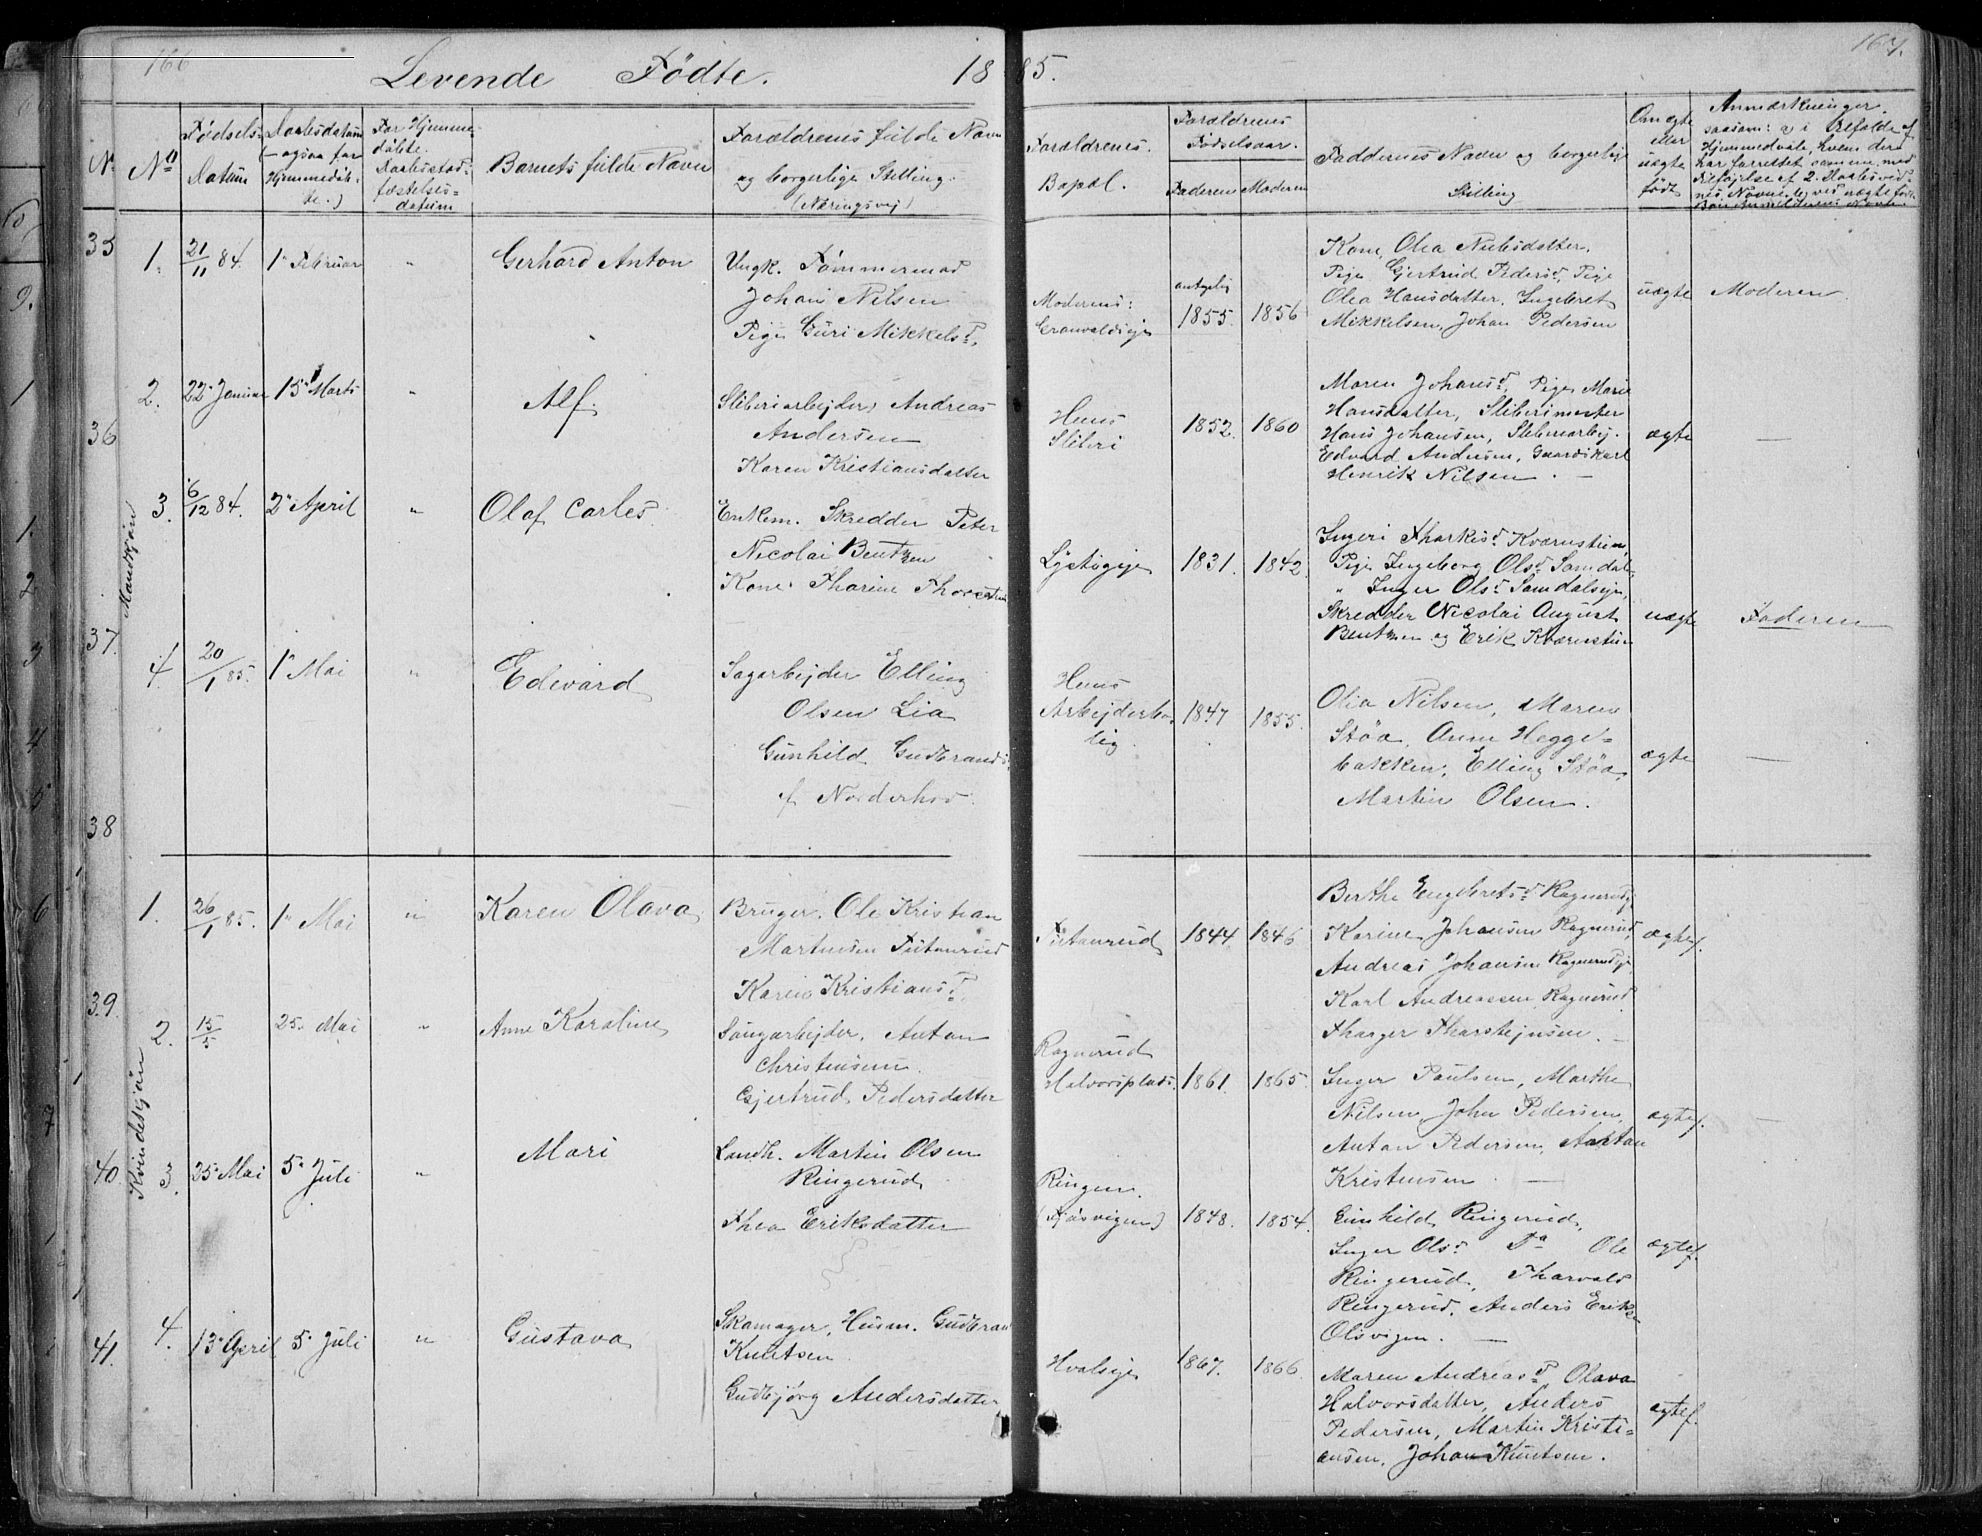 166
Levende Fødte. 18 85.
167.
No
Fødsels-
Datum
Daabsdatum
(ogsaa for
Hjemmedøb-
te.)
For Hjemme-
døbte.
Daabsstad-
fæstelses-
datum
Barnets fulde Navn
Forældrenes fulde Navn
og borgerlige Stilling.
(Næringsvej)
Forældrenes
Bopæl.
Forældrenes
Fødselsaar.
Faderen Moderen
Faddernes Navn og borgerlige
Stilling
Om ægte
eller
uægte
født
Anmærkninger
saasom: a) i Tilfælde af
Hjemmedaab, hvem der
har forrettet samme, med
Tilføjelse af 2 Daabsvid-
nes Navne, b) ved uægte fødte
Børn Anmelderens Navn
Mandkjøn
35
1. 21/11 84. 1ste Februar " Gerhard Anton
Ungk. Tømmermand
Johan Nilsen
Pige Guri Mikkelsd.
Moderens:
antagelig
1855. 1856
Kone Olea Nielsdatter.
Pige Gjertrud Pedersd. Pige
Olea Hansdatter, Ingebret
Mikkelsen, Johan Pedersen
uægte Moderen
36
2. 22 Januar 15 Marts " Alf.
Sliberiarbejder Andreas
Andersen
Karen Kristiansdatter
Hens
Sliberi
1852. 1860
Maren Johansd, Pige Marie
Hansdatter, Sliberimester
Hans Johansen, Sliberiarbej.
Edvard Andersen, Gaardskarl
Henrik Nilsen.
ægte —
3. 6/12 84. 2 April " Olaf Carles
Enkem. Skredder Peter
Nicolai Bentzen
Kone Tharine
1831. 1842
Ingeri
Pige Ingeborg Olsd.
" Inger Olsd.
Skredder Nicolai August
Bentzen og Erik
uægte Faderen
37.
4. 20/1 85. 1 Mai " Edevard
Sagarbejder Elling
Olsen Lia
Gunhild Gudbrandsd.
f. Norderhov.
Hens
Arbejderbo-
lig.
1847 1855.
Olia Nilsen, Maren
Støa, Anne Hegge-
bakken, Elling Støa,
Martin Olsen.
ægte —
38
Kvindekjøn
1. 26/1 85. 1 Mai " Karen Olava
Bruger. Ole Kristian
Martinsen
Karen Kristiansd.
1844. 1846
Berthe Engebretsd. Ragnerud
Karine Johansen Ragnerud,
Andreas Johansen
Karl Andreassen Ragnerud
Tharger Tharstejnsen.
ægtef.
39.
2. 15/5 25 Mai " Anne Karoline
Saugarbejder, Anton
Christensen.
Gjertrud Pedersdatter
Ragnerud
Halvorsplads.
1861. 1865.
Inger Paulsen, Marthe
Nilsen, John Pedersen,
Anton Pedersen, Anton
Kristensen.
ægtef. —
40.
3. 25 Mai 5 Juli " Mari
Landh. Martin Olsen
Ringerud
Thea Eriksdatter
Ringen.
1848. 1854.
Gunhild Ringerud,
Inger Olsd. Do Ole
Ringerud, Tharvald
Ringerud, Anders Eriks
Olsvigen.
ægtef.
41.
4. 13 April 5 Juli " Gustava
Skomager, Husm. Gudbran
Knutsen
Gudbjørg Andersdatter
Hvalseje
1867. 1866
Maren Andreasd. Olava
Halvorsdatter, Anders
Pedersen, Martin Kristi-
ansen, Johan Knutsen.
ægtef.